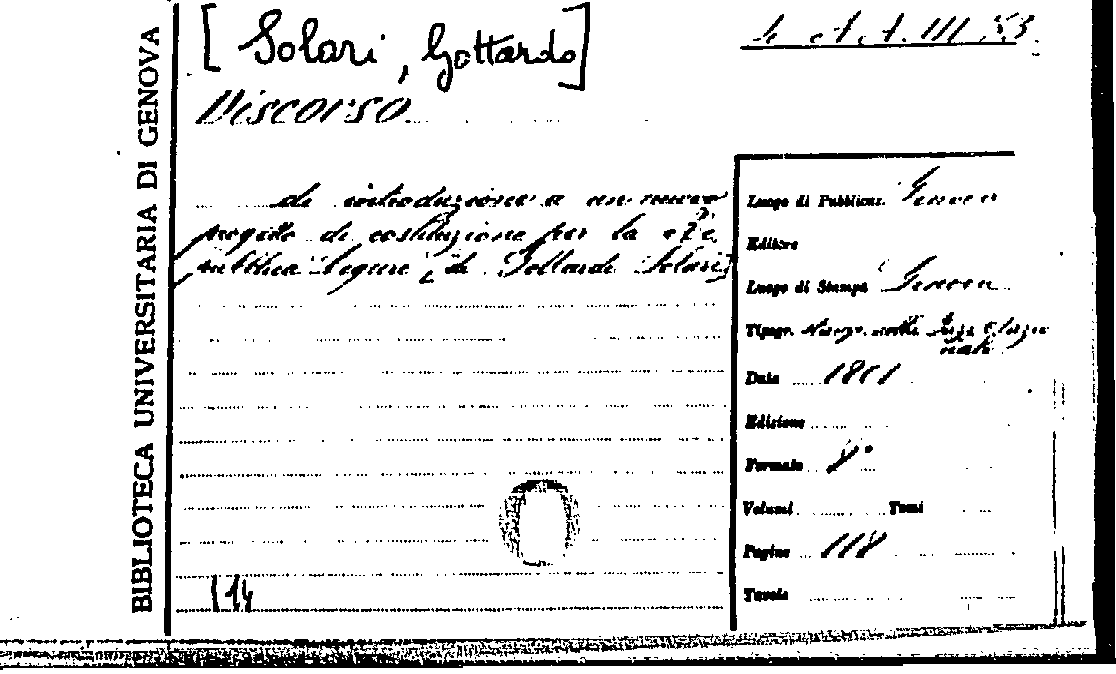 BIBLIOTECA UNIVERSITARIA DI GENOVA
[Solari, Gottardo]
Discorso
di introduzione a un nuovo
progetto di costituzione per la Re
pubblica Ligure [di Gottardo Solari]
114
A A III 53
Luogo di Pubblicaz. Genova
Editore
Luogo di Stampa Genova
Tipogr.
Data 1801
Edizione
Formato 8°
Volumi Tomi
Pagine 118
Tavole